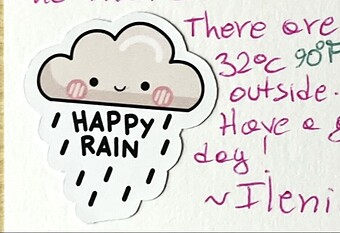 There are
32°c 90°F
outside.
Have a
day!
~Ileni
HAPPY
RAIN